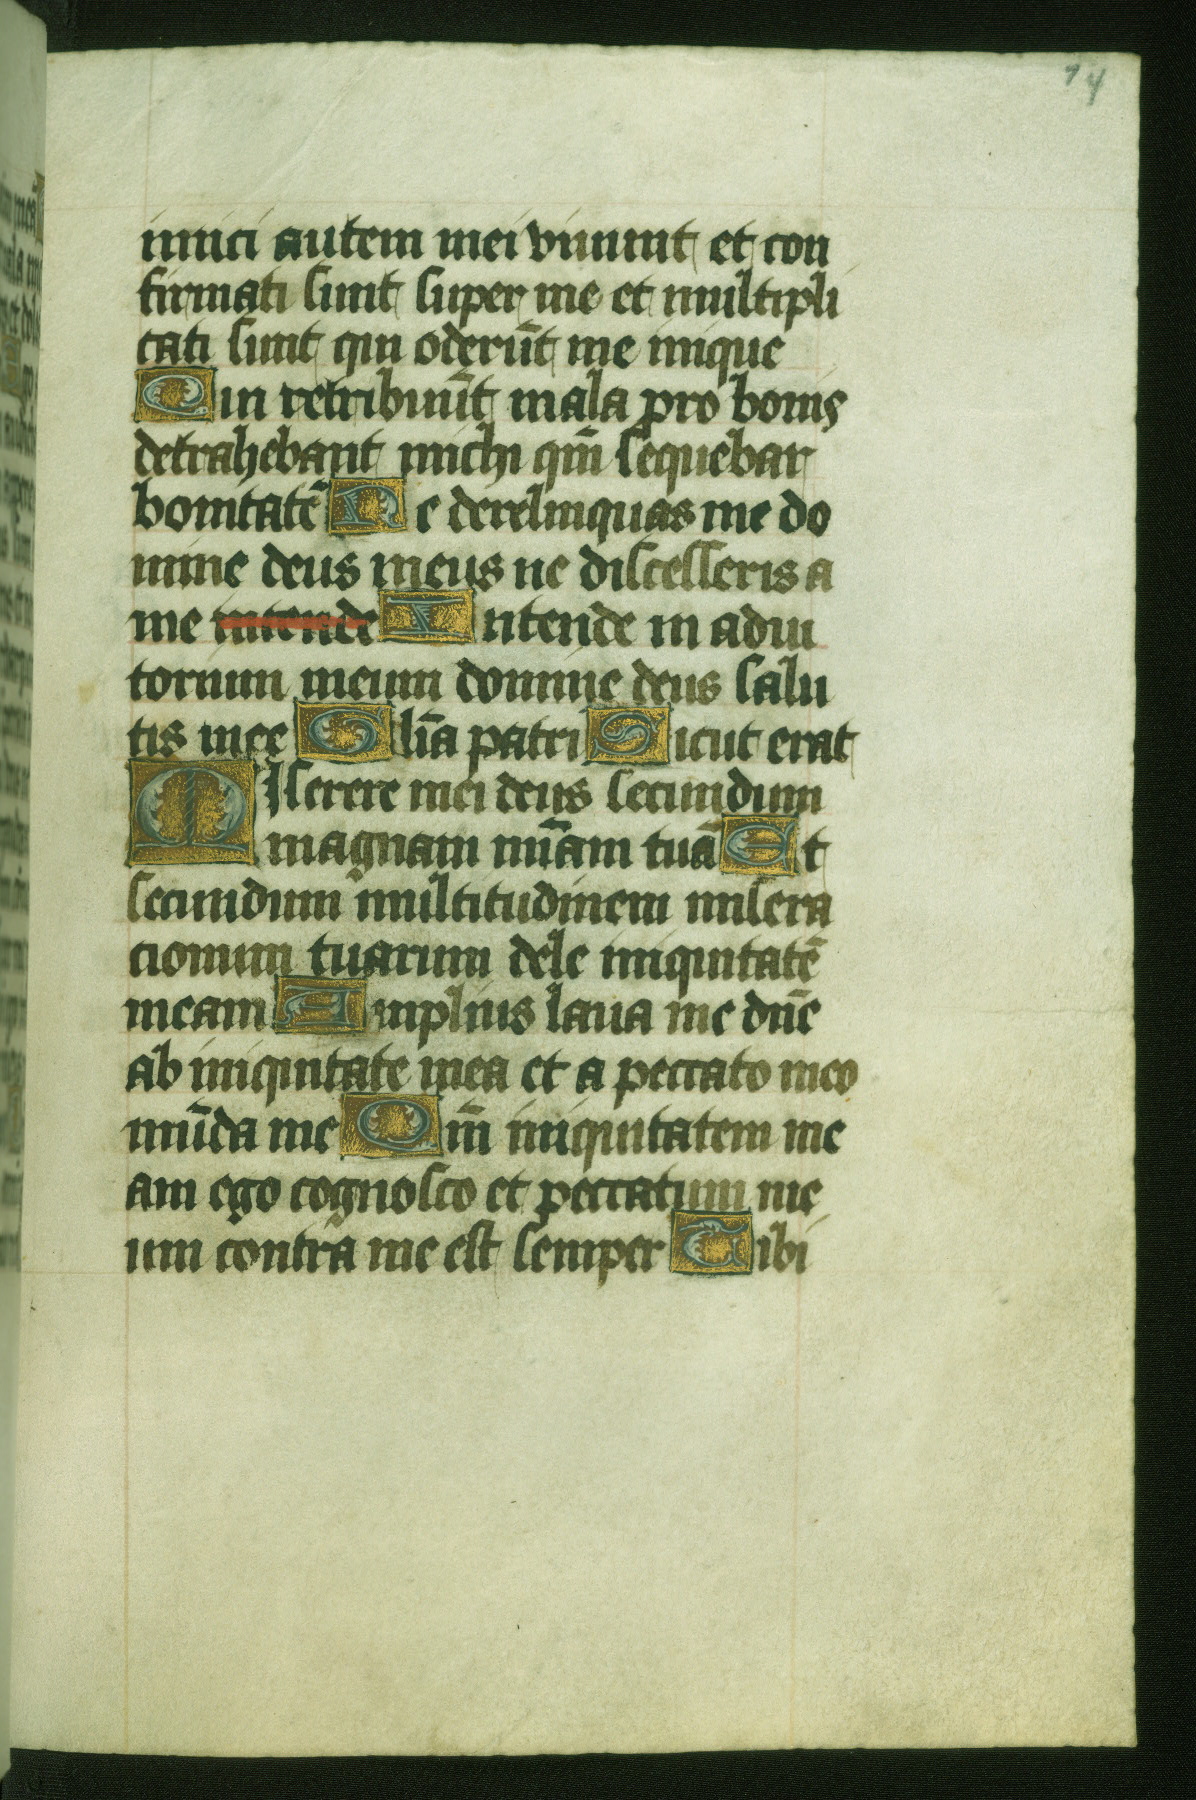 74
inimici autem mei viuunt et con
firmati sunt super me et multipli
cati sunt qui oderūt me inique
Qui retribuūt mala pro bonis
detrahebant michi qm̄ sequebar
bonitatē Ne derelinquas me do
mine deus meus ne discesseris a
me intende Intende in adiu
torium meum domine deus salu
tis mee Glīa patri Sicut erat
Miserere mei deus secundum
magnam mīam tuā Et
secundum multitudinem misera
cionum tuarum dele iniquitatē
meam Amplius laua me dn̄e
ab iniquitate mea et a peccato meo
mūda me Qm̄ iniquitatem me
am ego cognosco et peccatum me
um contra me est semper Tibi